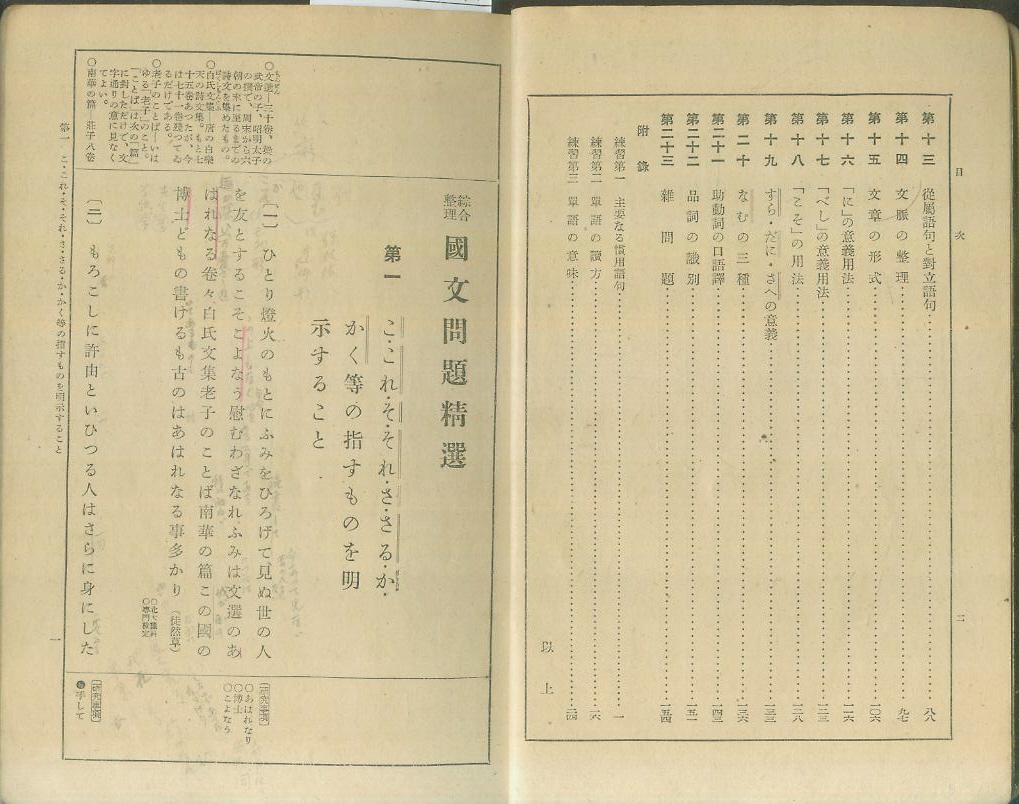 目次
二
第十三 從屬語句と對立語句 八八
第十四 文脈の整理 九七
第十五 文章の形式 一〇六
第十六 「に」の意義用法 一一六
第十七 「べし」の意義用法 一二三
第十八 「こそ」の用法 一二八
第十九 すら・だに・さへの意義 一三三
第二十 なむの三種 一三六
第二十一 助動詞の口語譯 一四三
第二十二 品詞の識別 一五一
第二十三 雜問題 一五四
附錄
練習第一 主要なる慣用語句 一
練習第二 單語の讀方 一六
練習第三 單語の意味 二四
以上
綜合整理 國文問題精選
第一 こ・これ・そ・それ・さ・さる・か・
かく等の指すものを明
示すること
〔一〕 ひとり燈火のもとにふみをひろげて見ぬ世の人
を友とするこそこよなう慰むわざなれふみは文選のあ
はれなる卷々白氏文集老子のことば南華の篇この國の
博士どもの書けるも古のはあはれなる事多かり（徒然草）
〔二〕 もろこしに許由といひつる人はさらに身にした
○文選―三十卷、梁の
武帝の子、昭明太子
の撰で、周末から六
朝の末に至るまでの
詩文を集めたもの。
○白氏文集―唐の白樂
天の詩文集。もと七
十五卷あつたが、今
は七十一卷殘つてゐ
るだけである。
○老子のことば―いは
ゆる「老子」のこと。
「ことば」は次の「篇」
に對しただけで、文
字通りの意に見なく
てよい。
○南華の篇―莊子八卷
〔硏究事項〕
○あはれなり
○博士
○こよなう
〔硏究事項〕
手して
第一 こ・これ・そ・それ・さ・さる・か・かく等の指すものを明示すること
一